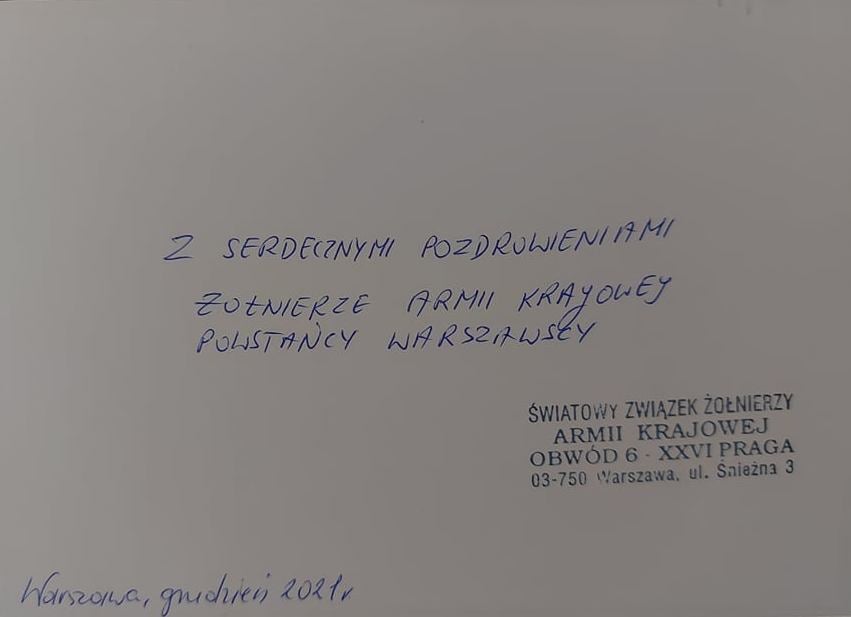 Z SERDECZNYMI POZDROWIENIAMI
ŻOŁNIERZE ARMII KRAJOWEJ
POWSTAŃCY WARSZAWSCY
ŚWIATOWY ZWIĄZEK ŻOŁNIERZY
ARMII KRAJOWEJ
OBWÓD 6 - XXVI PRAGA
03-750 Warszawa, ul. Śnieżna 3
Warszawa, grudzień 2021r.